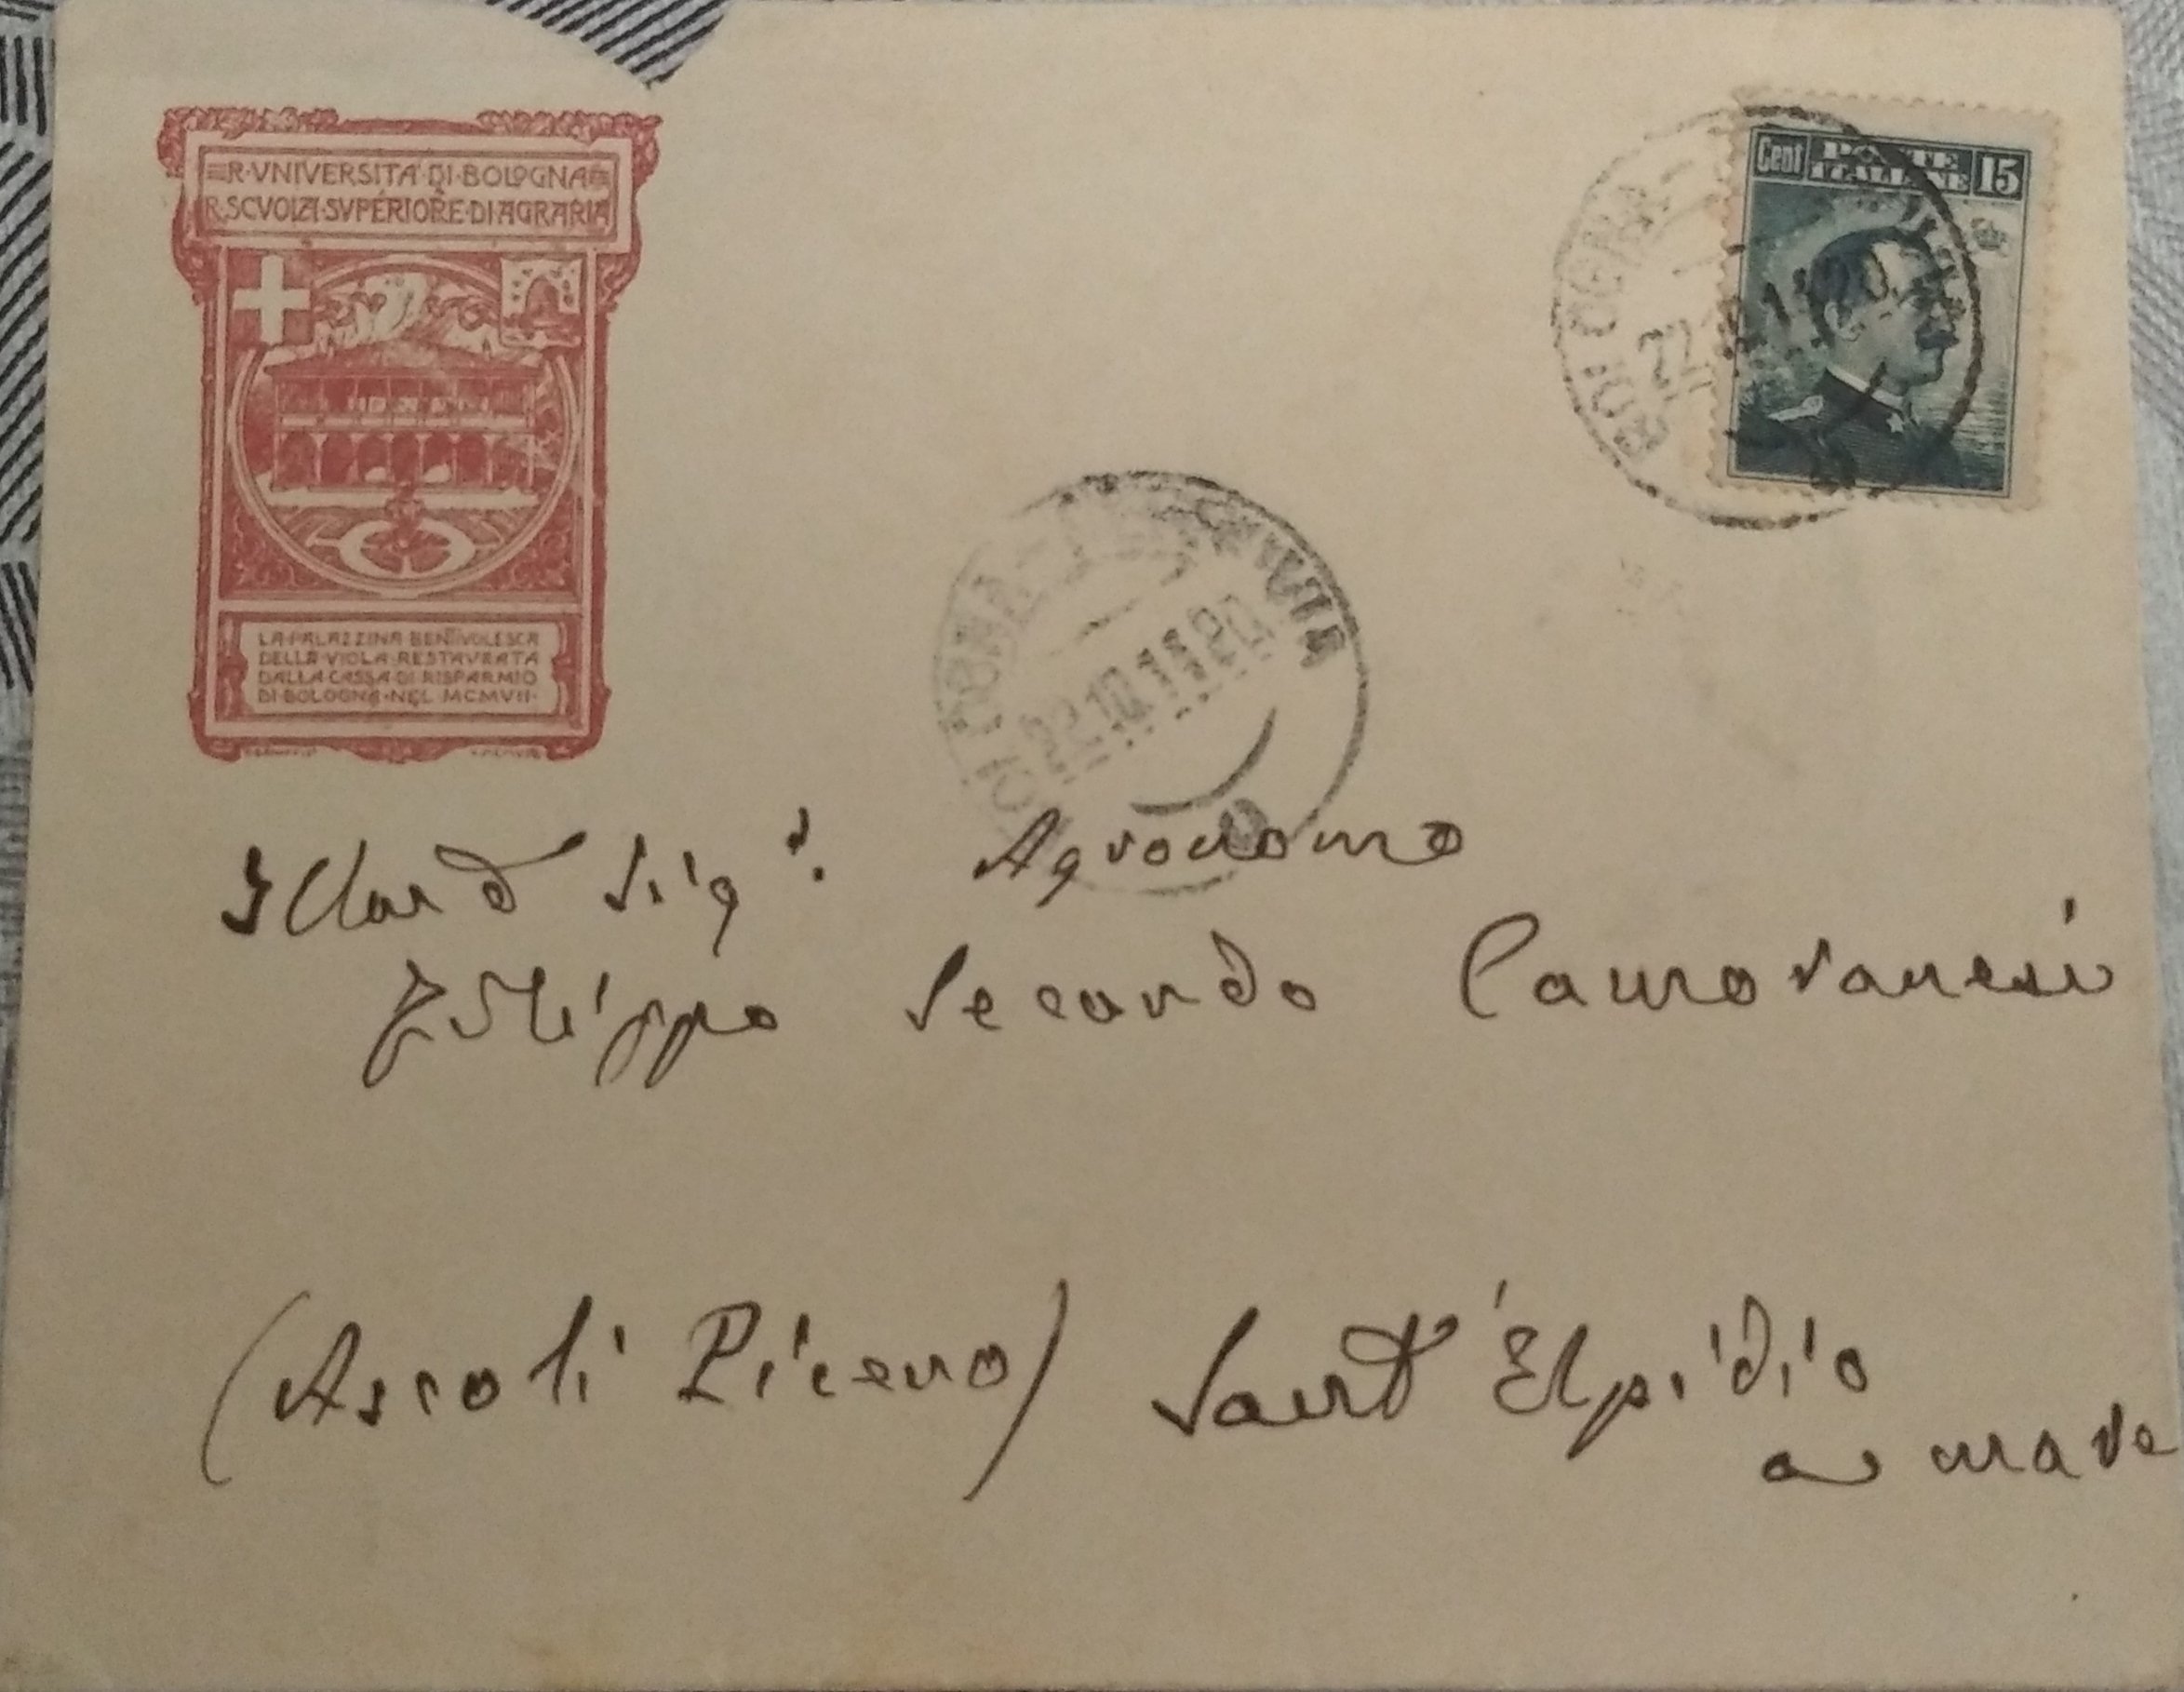 R·VNIVERSITA'·DI·BOLOGNA
R.SCVOLA·SVPERIORE·DI AGRARIA
LA·PALAZZINA·BENTIVOLESCA
DELLA·VIOLA·RESTAVRATA
DALLA·CASSA·DI·RISPARMIO
DI·BOLOGNA·NEL MCMVII·
Cent POSTE ITALIANE 15
BOLOGNA
22
BOLOGNA - FERROVIA
22.10.11 20
Sigr. Agronomo
Filippo Secondo
(Ascoli Piceno) Sant'Elpidio
a mare